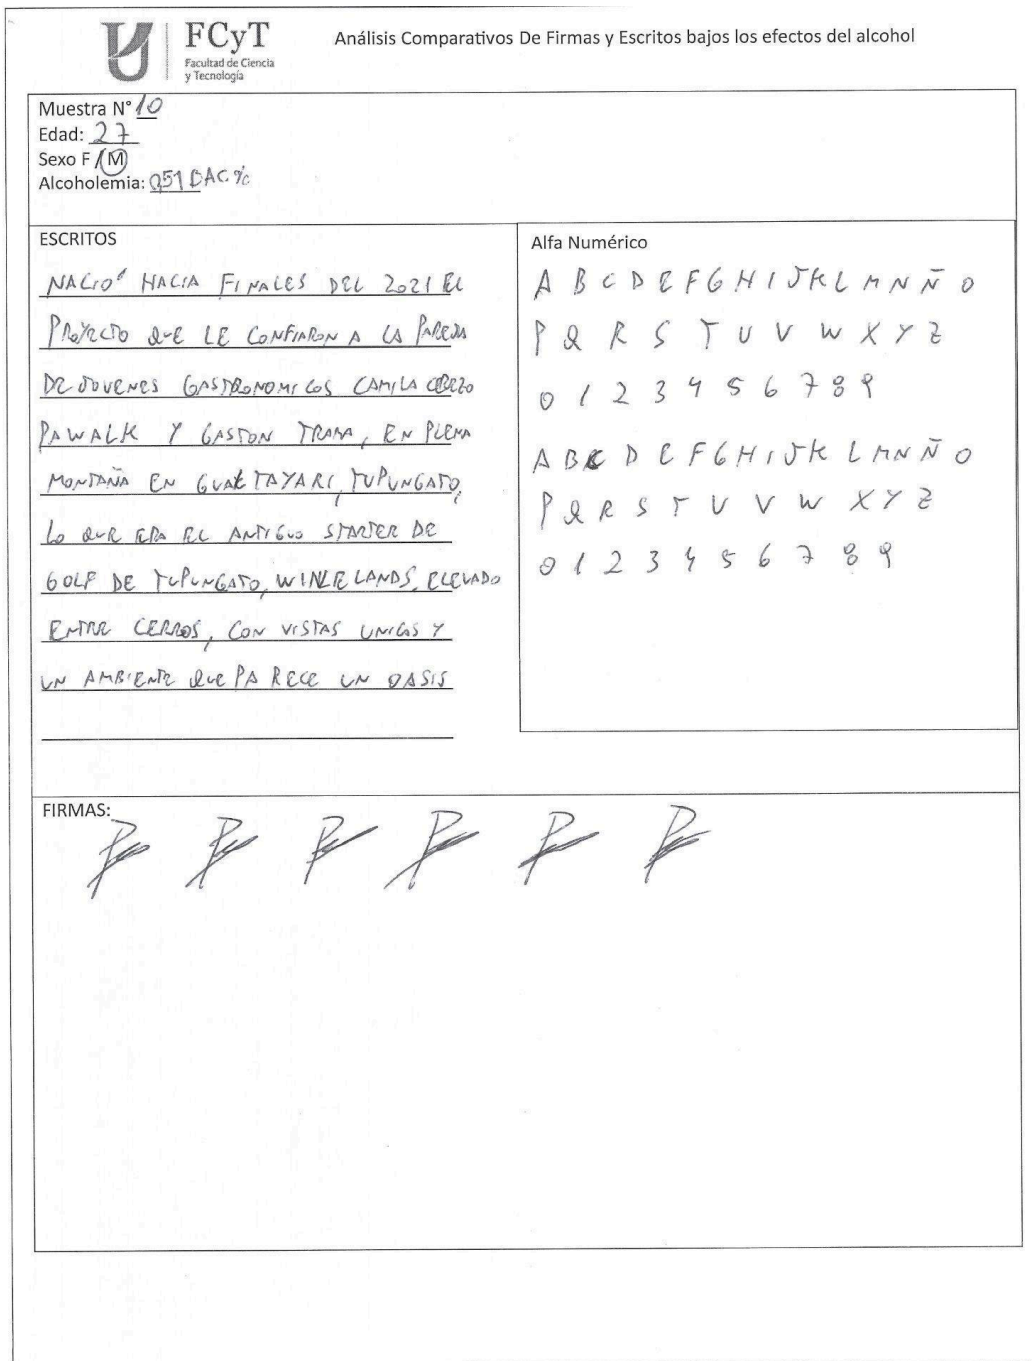 FCyT
Facultad de Ciencia
y Tecnología
Análisis Comparativos De Firmas y Escritos bajos los efectos del alcohol
Muestra N° 10
Edad: 27
Sexo F / M
Alcoholemia: 0,51 BAC %
ESCRITOS
NACIO' HACIA FINALES DEL 2021 EL
PROYECTO QUE LE CONFIARON A LA PAREJA
DE JOVENES GASTRONOMICOS CAMILA CEREZO
PAWALK Y GASTON TRAMA, EN PLENA
MONTAÑA EN GUALTAYARI, TUPUNGATO,
LO QUE ERA EL ANTIGUO STARTER DE
GOLF DE TUPUNGATO, WINE LANDS, ELEVADO
ENTRE CERROS, CON VISTAS UNICAS Y
UN AMBIENTE QUE PARECE UN OASIS
Alfa Numérico
A B C D E F G H I J K L M N Ñ O
P Q R S T U V W X Y Z
0 1 2 3 4 5 6 7 8 9
A B C D E F G H I J K L M N Ñ O
P Q R S T U V W X Y Z
0 1 2 3 4 5 6 7 8 9
FIRMAS: